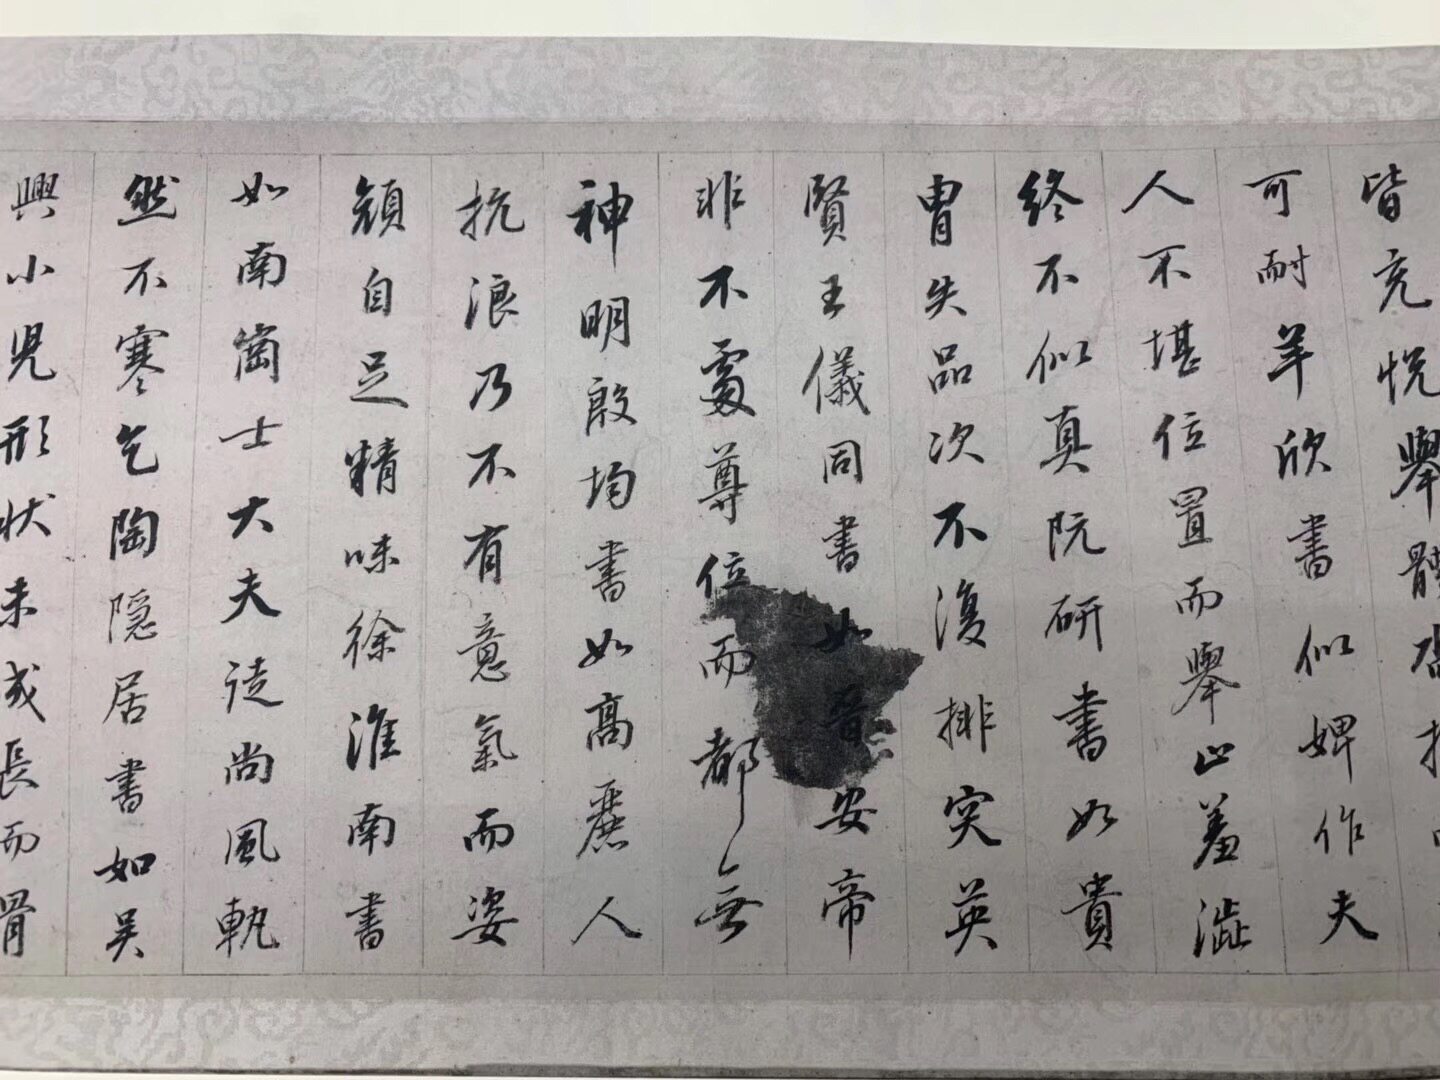 皆充悅舉體沓
可耐羊欣書似婢作夫
人不堪位置而舉止羞澀
終不似真阮研書如貴
冑失品次不復排突英
賢王儀同書如晉安帝
非不處尊位而都無
神明殷均書如高麗人
抗浪乃不有意氣而姿
顏自足精味徐淮南書
如南崗士大夫徒尚風軌
然不寒乞陶隱居書如吳
興小兒形狀未成長而骨